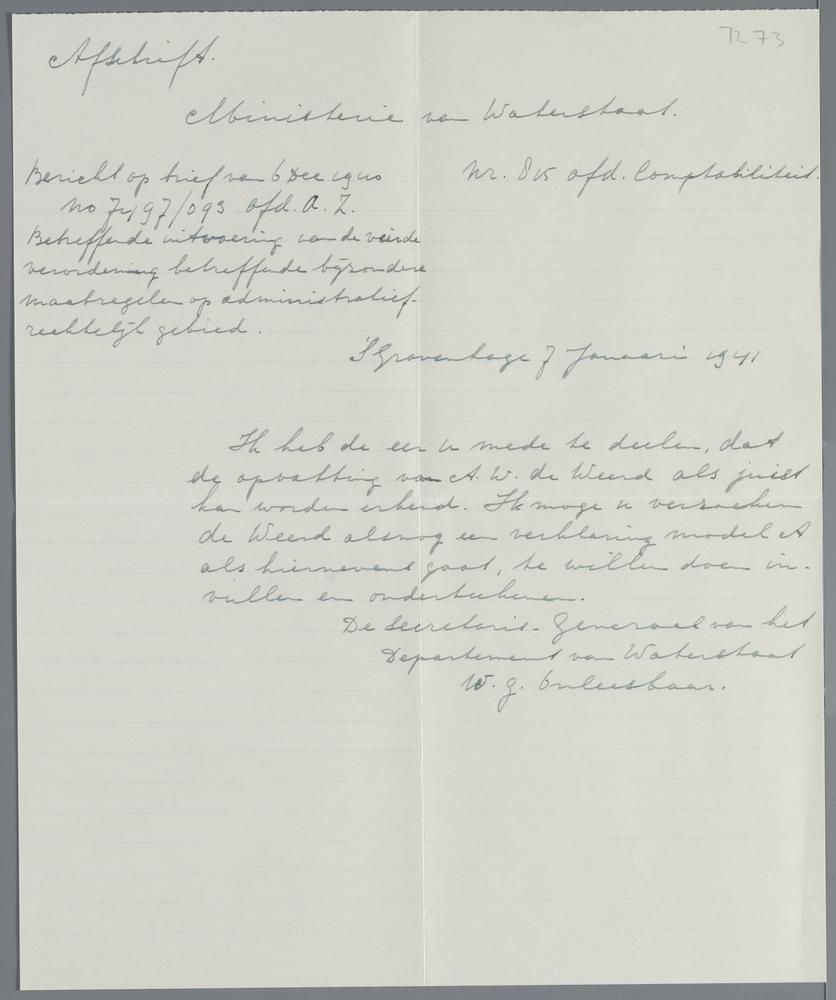 7273
Afschrift.
Ministerie van Waterstaat.
Bericht op brief van 6 Dec 1940
Nr. 815 afd. Comptabiliteit.
No 7497/093 afd. A. Z.
Betreffende uitvoering van de vierde
verordening betreffende byzondere
maatregelen op administratief-
rechtelijk gebied.
'S Gravenhage 7 Januari 1941
Ik heb de eer u mede te deelen, dat
de opvatting van A. W. de Weerd als juist
kan worden erkend. Ik moge u verzoeken
de Weerd alsnog een verklaring model A
als hiernevens gaat, te willen doen in-
vullen en onderteekenen.
De Secretaris-Generaal van het
Departement van Waterstaat
W. g. Onleesbaar.